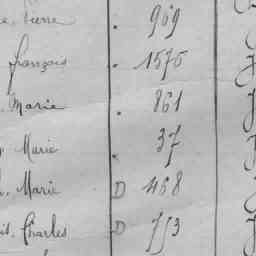 Pierre . 969
François . 1575
Marie . 861
Marie . 37
Marie D 468
Charles D 753